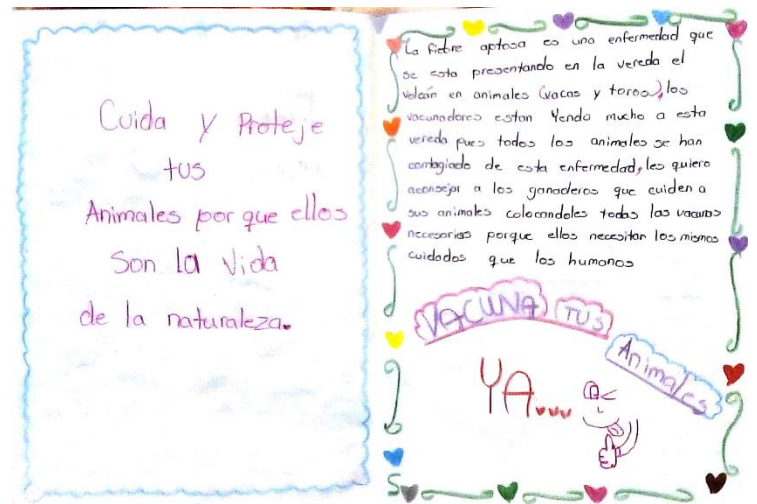 Cuida y Proteje
tus
Animales por que ellos
Son la Vida
de la naturaleza.
La fiebre aptosa es una enfermedad que
se esta presentando en la vereda el
volcán en animales (vacas y toros), los
vacunadores estan Yendo mucho a esta
vereda pues todos los animales se han
contagiado de esta enfermedad, les quiero
aconsejar a los ganaderos que cuiden a
sus animales colocandoles todas las vacunas
necesarias porque ellos necesitan los mismos
cuidados que los humanos
VACUNA TUS
Animales
YA...